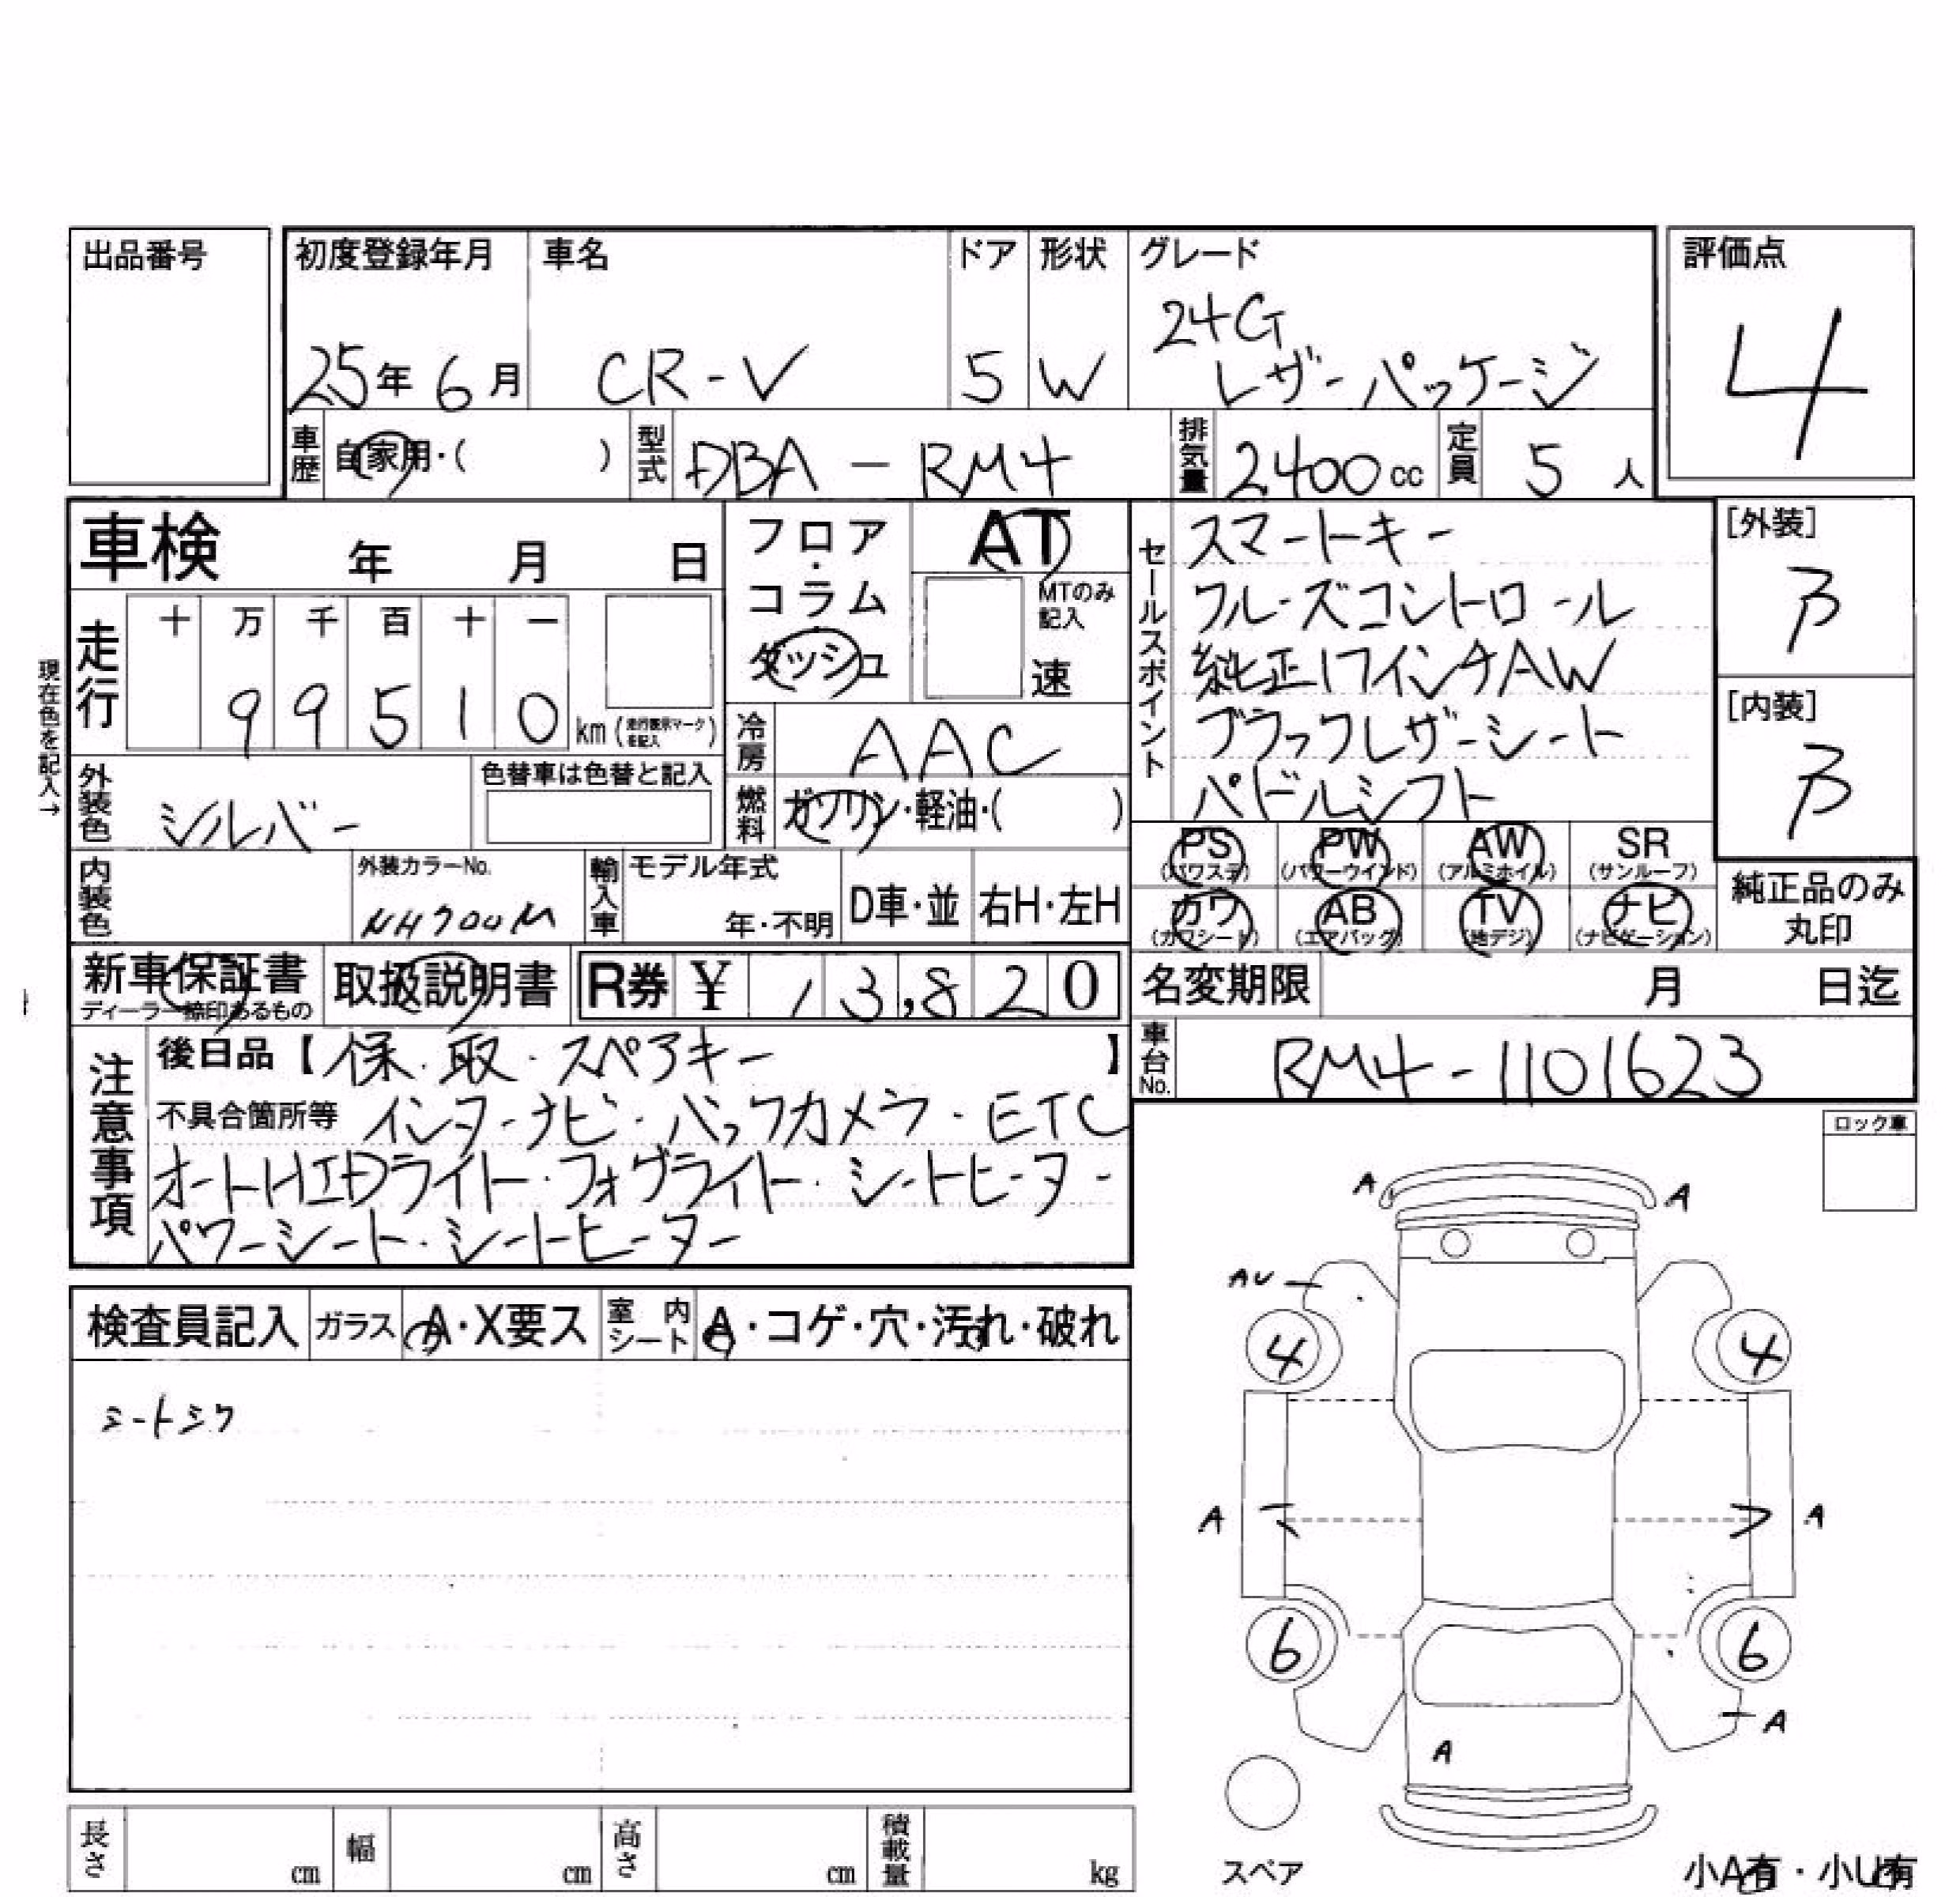 出品番号
初度登録年月 車名 ドア 形状 グレード 評価点
25年 6月 CR-V 5 W 24G
レザーパッケージ
4
車歴 自家用・( ) 型式 DBA-RM4 排気量 2400cc 定員 5人
車検 年 月 日
フロア・コラム・ダッシュ
AT
MTのみ記入
速
セールスポイント
スマートキー
クルーズコントロール
純正17インチAW
ブラックレザーシート
パドルシフト
[外装]
B
[内装]
B
現在色を記入→
走行 十 万 千 百 十 一
9 9 5 1 0 km (走行表示マークを記入)
冷房 AAC
燃料 ガソリン・軽油・( )
外装色 シルバー 色替車は色替と記入
内装色 外装カラーNo. NH700M
輸入車 モデル年式 年・不明 D車・並 右H・左H
PS (パワステ) PW (パワーウインド) AW (アルミホイル) SR (サンルーフ)
カワ (カワシート) AB (エアバッグ) TV (地デジ) ナビ (ナビゲーション)
純正品のみ丸印
新車保証書 ディーラー捺印あるもの 取扱説明書 R券 ¥ 13,820
名変期限 月 日迄
車台No. RM4-1101623
注意事項
後日品【保・取・スペアキー】
不具合箇所等 インターナビ・バックカメラ・ETC
オートHIDライト・フォグライト・シートヒーター
パワーシート・シートヒーター
ロック車
検査員記入 ガラス A・X要ス 室内シート A・コゲ・穴・汚れ・破れ
シートシワ
A A
AU
4 4
A A
6 6
A
A
スペア
長さ cm 幅 cm 高さ cm 積載量 kg
小A有・小U有